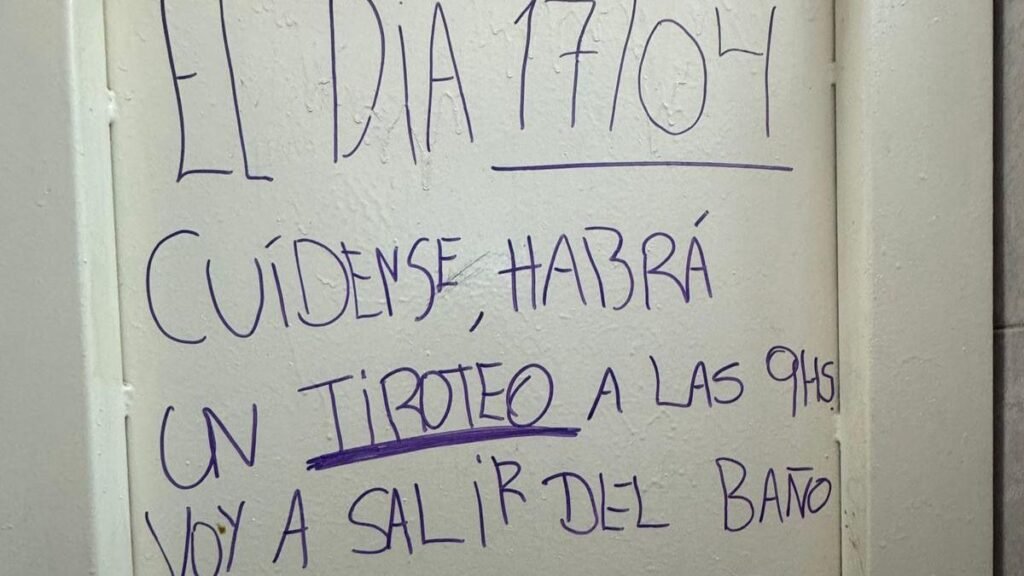 EL DIA 17/04
CUÍDENSE, HABRÁ
UN TIROTEO A LAS 9HS.
VOY A SALIR DEL BAÑO